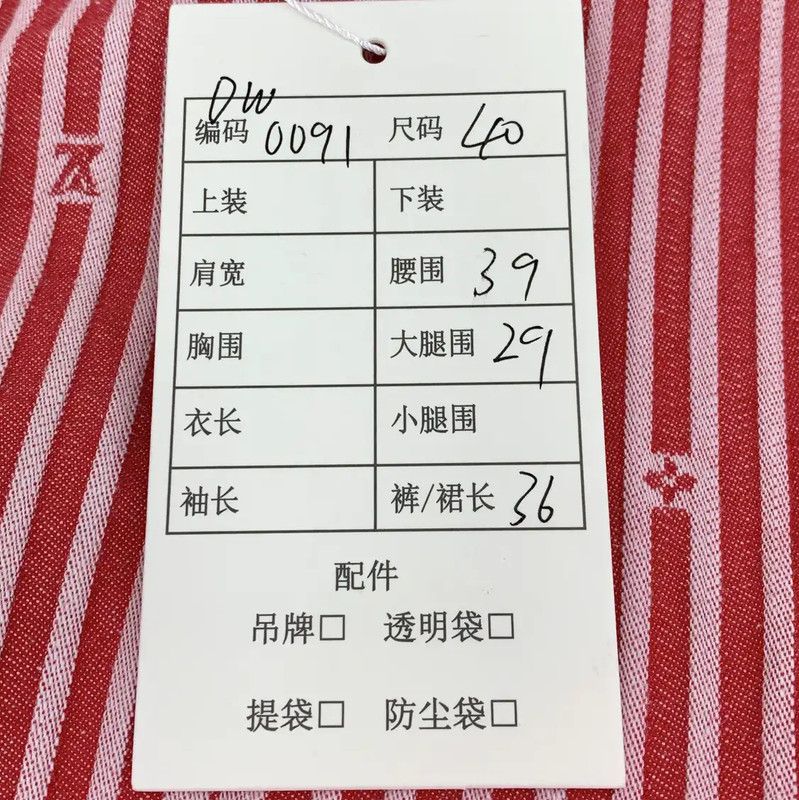 DW
编码 0091 尺码 40
上装 下装
肩宽 腰围 39
胸围 大腿围 29
衣长 小腿围
袖长 裤/裙长 36
配件
吊牌□ 透明袋□
提袋□ 防尘袋□